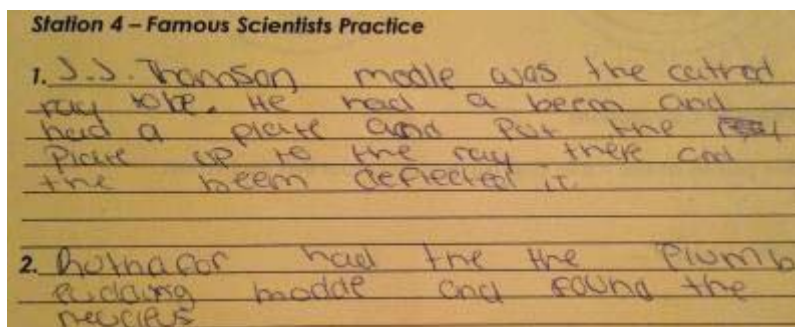 Station 4 – Famous Scientists Practice
1. J.J. Thomson modle was the cathod
ray tobe. He had a beem and
had a plate and put the
Plate up to the ray there and
the beem deflected it.
2. Ruthafor had the the Plumb
pudding modde and found the
neucleus